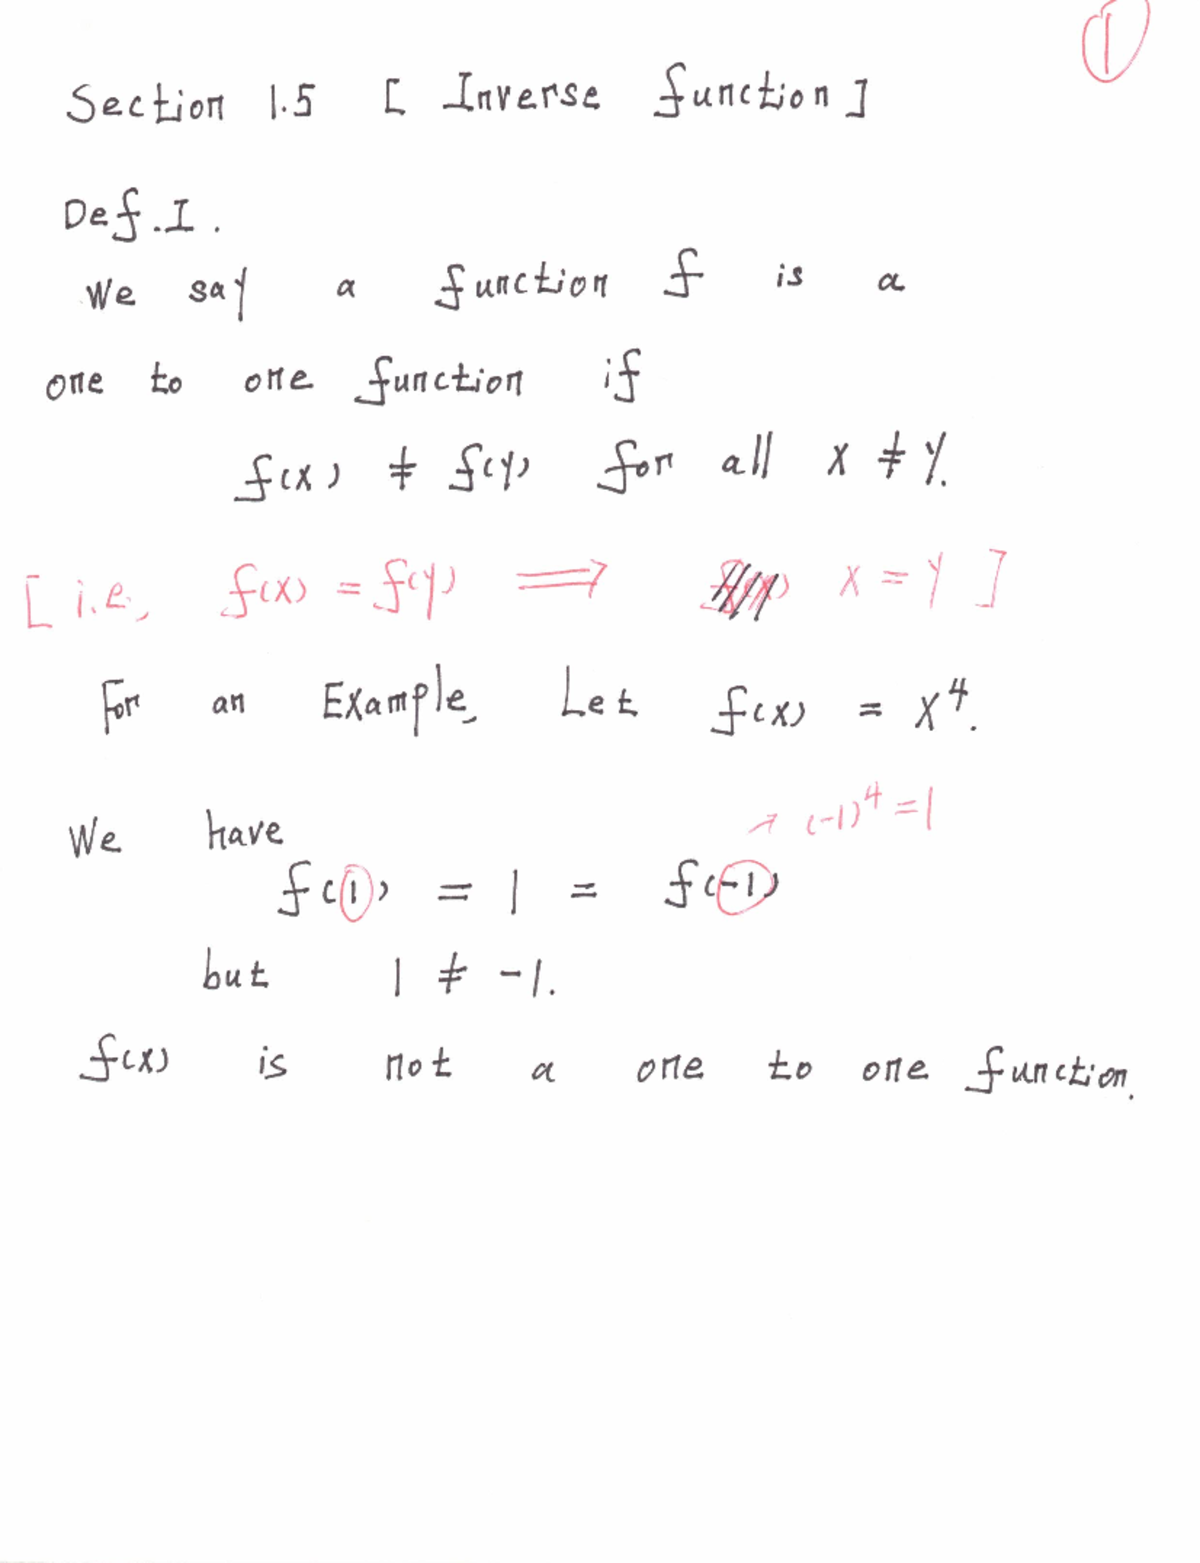 ①
Section 1.5 [ Inverse function ]
Def.I.
We say a function f is a
one to one function if
f(x) ≠ f(y) for all x ≠ y.
[ i.e., f(x) = f(y) ⟹ x = y ]
For an Example, Let f(x) = x⁴.
↗ (-1)⁴ = 1
We have
f(1) = 1 = f(-1)
but 1 ≠ -1.
f(x) is not a one to one function.